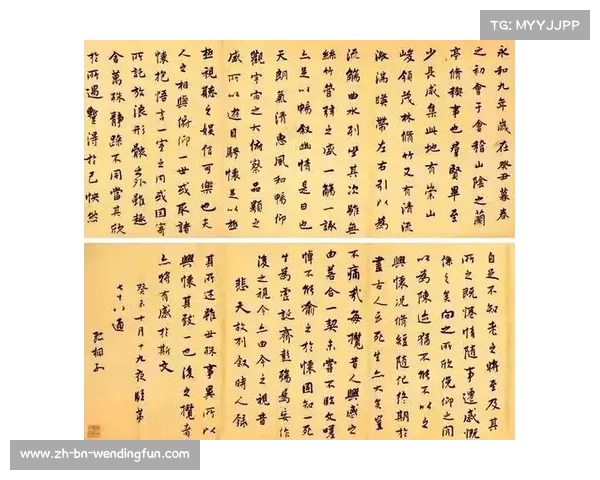 TG: MYYJJPP
永和九年歲在癸丑暮春
之初會于會稽山陰之蘭
亭脩稧事也羣賢畢至
少長咸集此地有崇山
峻領茂林脩竹又有清流
激湍暎帶左右引以為
流觴曲水列坐其次雖無
絲竹管絃之盛一觴一詠
亦足以暢叙幽情是日也
天朗氣清惠風和暢仰
觀宇宙之大俯察品類之
盛所以遊目騁懷足以
極視聽之娛信可樂也夫
人之相與俯仰一世或取諸
懷抱悟言一室之內或因寄
所託放浪形骸之外雖趣
舍萬殊靜躁不同當其欣
於所遇暫得於己怏然
自足不知老之將至及其
所之既惓情隨事遷感慨
係之矣向之所欣俛仰之閒
以為陳迹猶不能不以之
興懷況脩短隨化終期於
盡古人云死生亦大矣豈
不痛哉每攬昔人興感之
由若合一契未嘗不臨文嗟
悼不能喻之於懷固知一死
生為虛誕齊彭殤為妄作
後之視今亦由今之視昔
悲夫故列叙時人錄
其所述雖世殊事異所以
興懷其致一也後之攬者
亦將有感於斯文
癸未十月十九夜臨第
七十八通
www.zh-bn-wendingfun.com